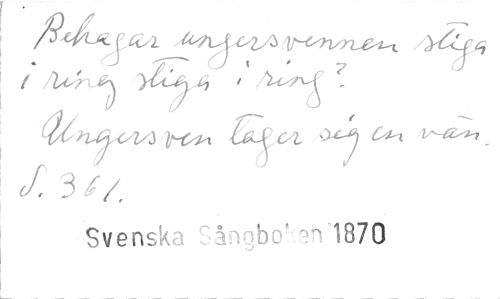 Behagar ungersvennen stiga
i ring stiga i ring?
Ungersven tager sig en vän.
S. 361.
Svenska Sångboken 1870